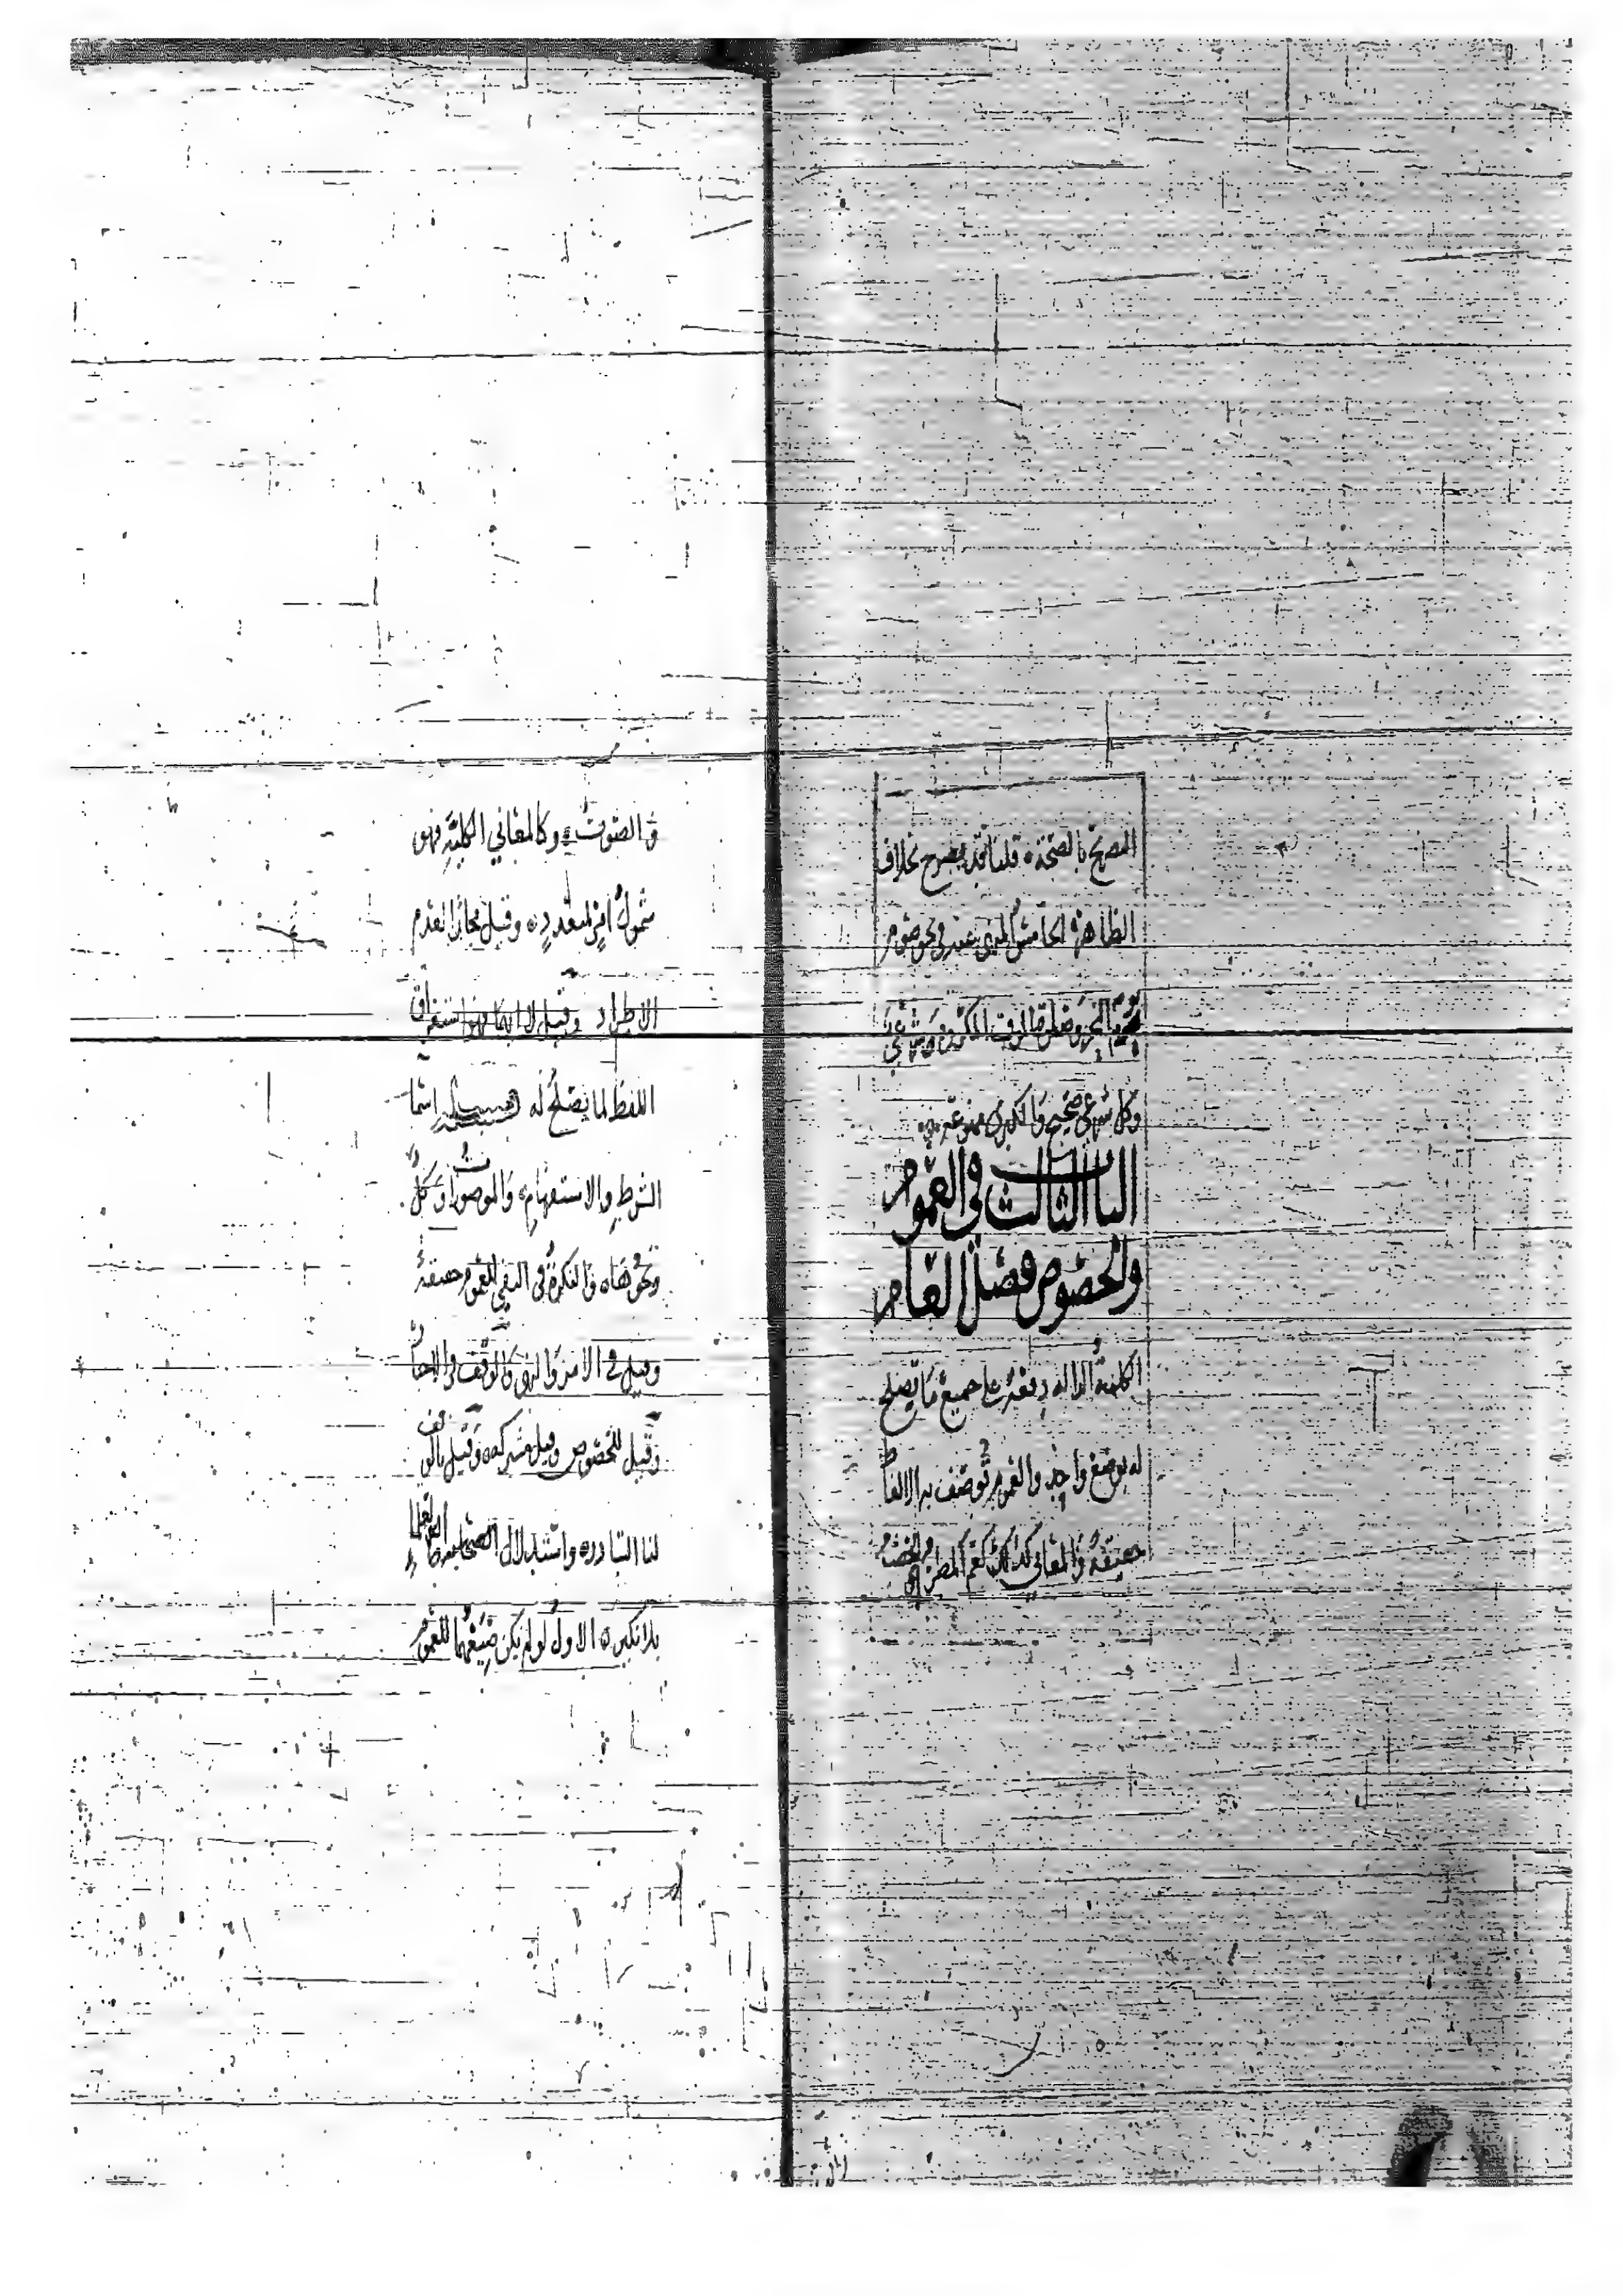 التصريح بالصحة، قلنا قد يصرح بخلاف
الظاهر، الخامس المنهي عنه في نحو صوم
يوم النحر
وكل شرعي صحيح
الباب الثالث في العموم
والخصوص فصل العام
الكلمة الدالة دفعة على جميع ما يصلح
له بوضع واحد والعموم توصف به الالفاظ
حقيقة والمعاني كذلك كعم المطر والخصب
والصوت، وكالمعاني الكلية فهو
شمول امر لمتعدد، وقيل مجازا لعدم
الاطراد وقيل لا ايهما فهو استغراق
اللفظ لما يصلح له اسما
الشرط والاستفهام، والموصولات وكل
ونحوها، والنكرة في النفي للعموم حقيقة
وقيل في الامر والنهي والوقف في الاخبار
وقيل للخصوص وقيل مشتركه، وقيل بالوقف
لنا التبادر، واستدلال الصحابة
بلا نكير، الاول لو لم يكن صيغتها للعموم